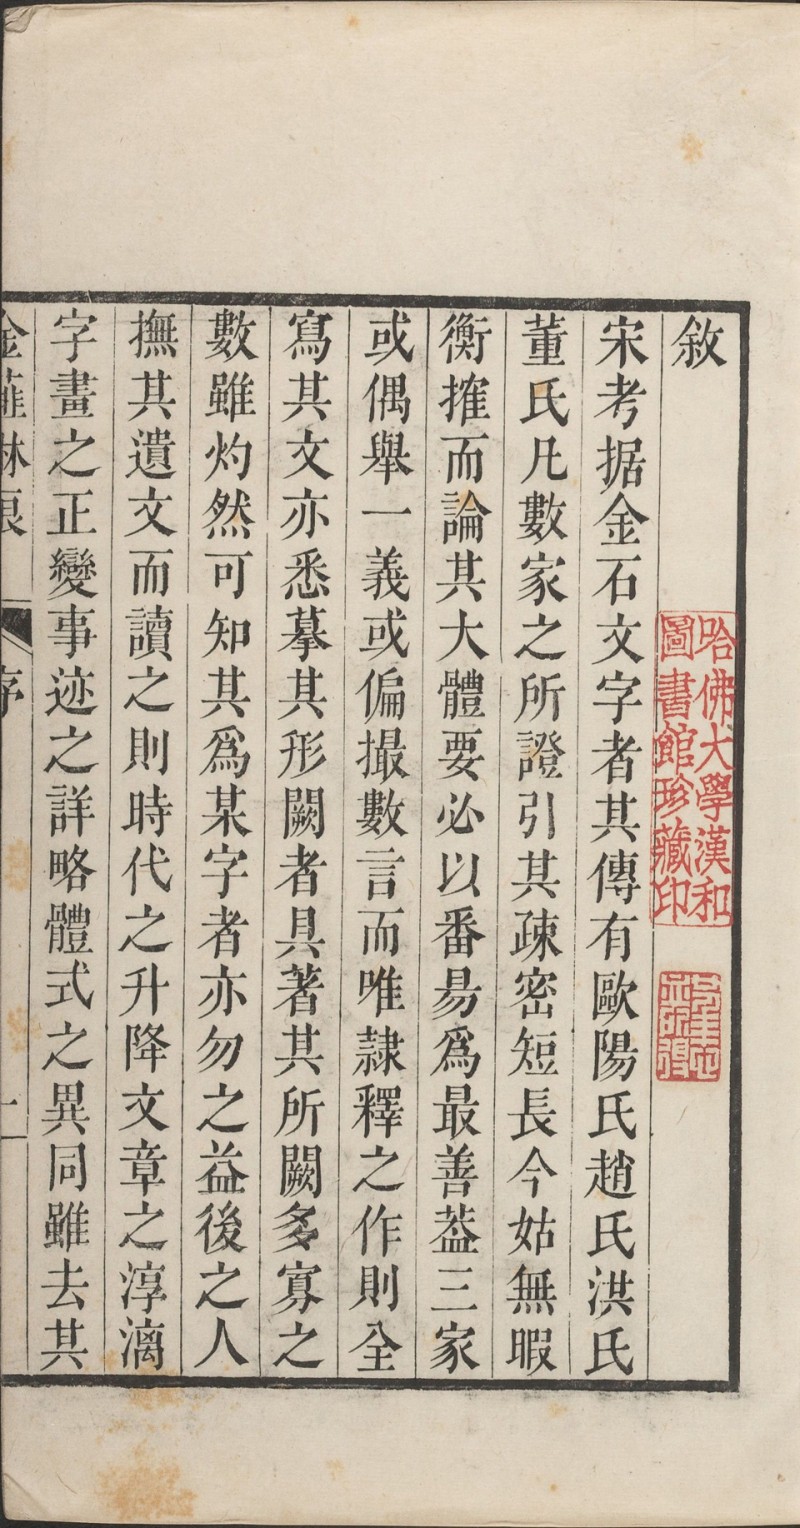 敘
宋考据金石文字者其傳有歐陽氏趙氏洪氏
董氏凡數家之所證引其疎密短長今姑無暇
衡搉而論其大體要必以番昜爲最善葢三家
或偶舉一義或偏撮數言而唯隷釋之作則全
寫其文亦悉摹其形闕者具著其所闕多寡之
數雖灼然可知其爲某字者亦勿之益後之人
撫其遺文而讀之則時代之升降文章之淳漓
字畫之正變事迹之詳略體式之異同雖去其
金薤琳琅
序
一
哈佛大學漢和
圖書館珍藏印